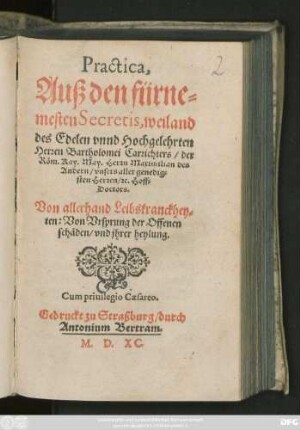 2
Practica,
Auß den fürne-
mesten Secretis, weiland
des Edelen vnnd Hochgelehrten
Herren Bartholomei Carrichters / der
Röm. Kay. May. Herrn Maximilian des
Andern / vnsers aller genedig-
sten Herren / ꝛc. Hoff-
Doctors.
Von allerhand Leibskranckhey-
ten: Von Vrsprung der Offenen
schäden / vnd jhrer heylung.
Cum priuilegio Cæsareo.
Gedruckt zu Straßburg / durch
Antonium Bertram.
M. D. XC.